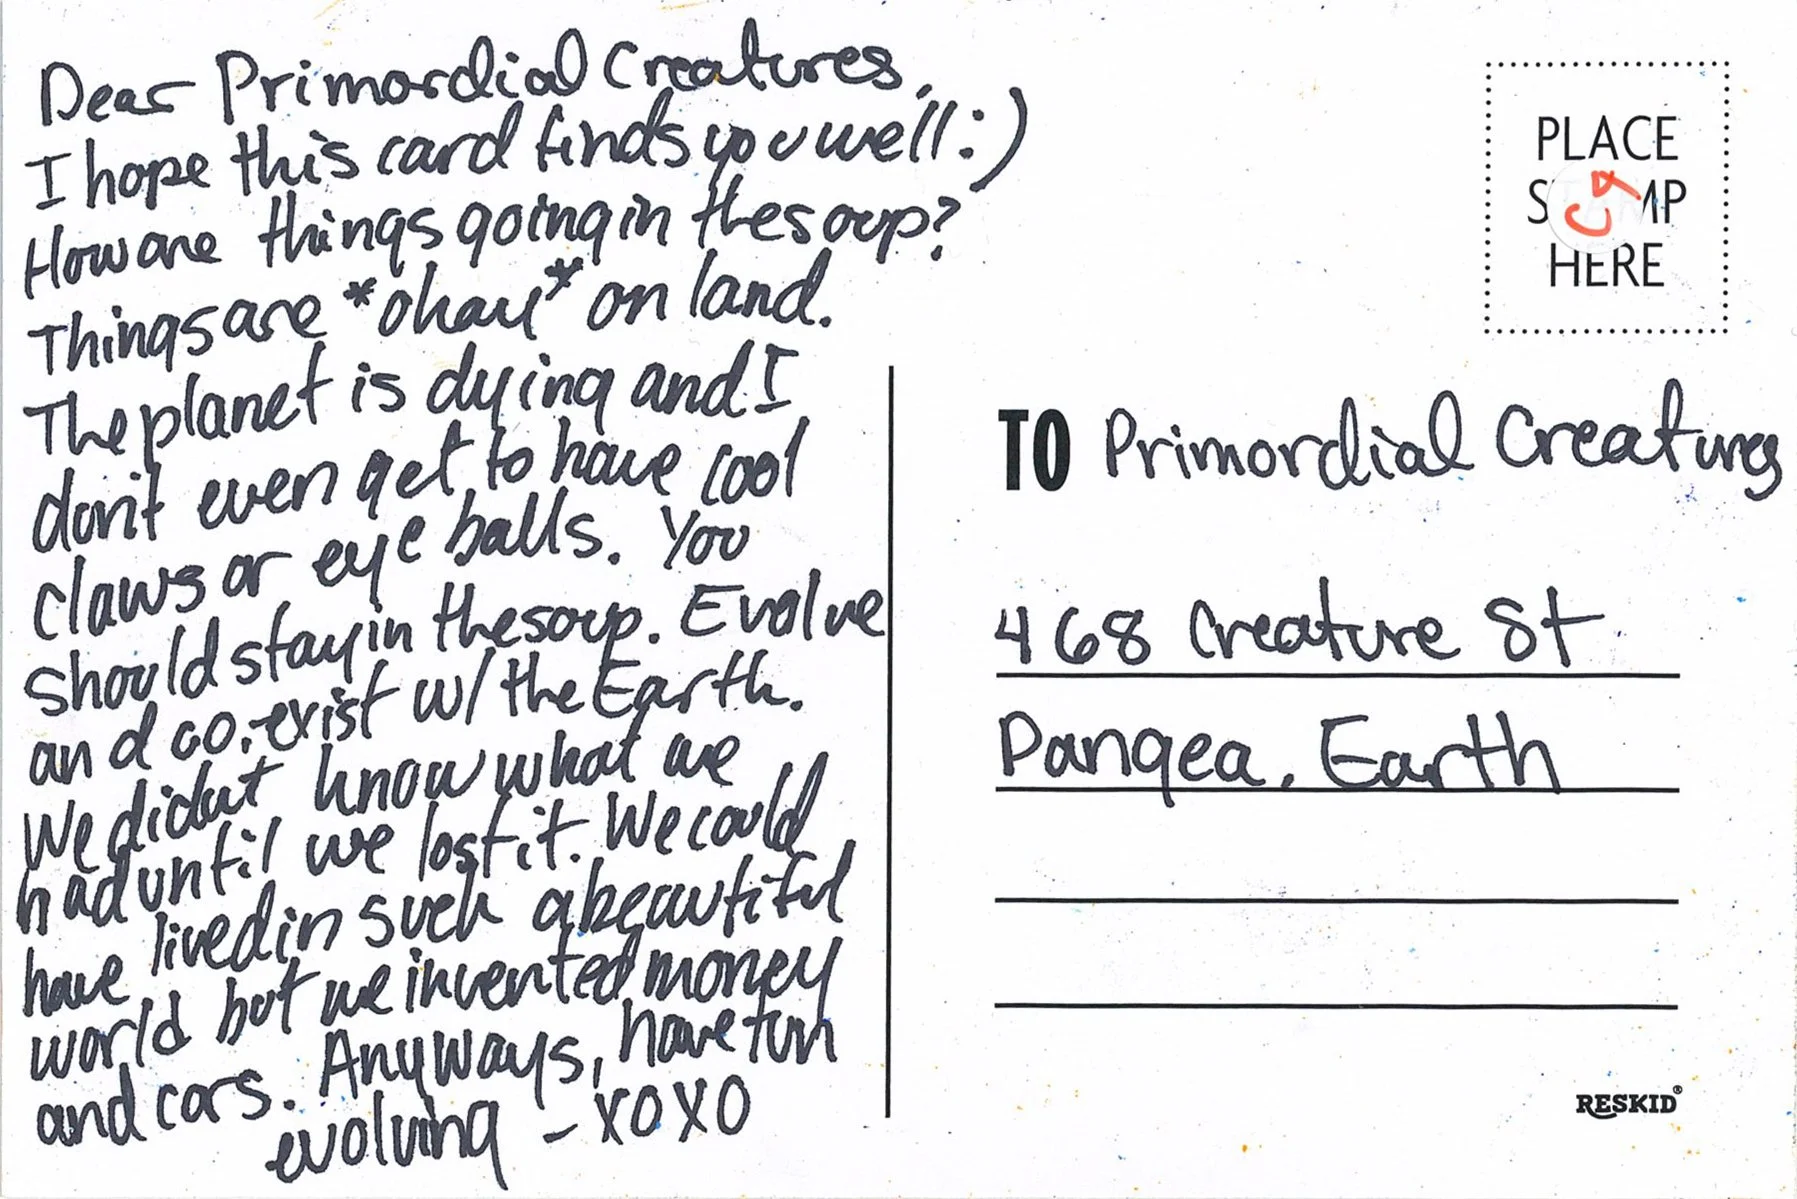 Dear Primordial Creatures,
I hope this card finds you well :)
How are things going in the soup?
Things are *okay* on land.
The planet is dying and I
don't even get to have cool
claws or eye balls. You
should stay in the soup. Evolve
and co-exist w/ the Earth.
We didn't know what we
had until we lost it. We could
have lived in such a beautiful
world but we invented money
and cars. Anyways, have fun
evolving - XOXO
PLACE
STAMP
HERE
TO Primordial Creatures
468 Creature St
Pangea, Earth
RESKID®